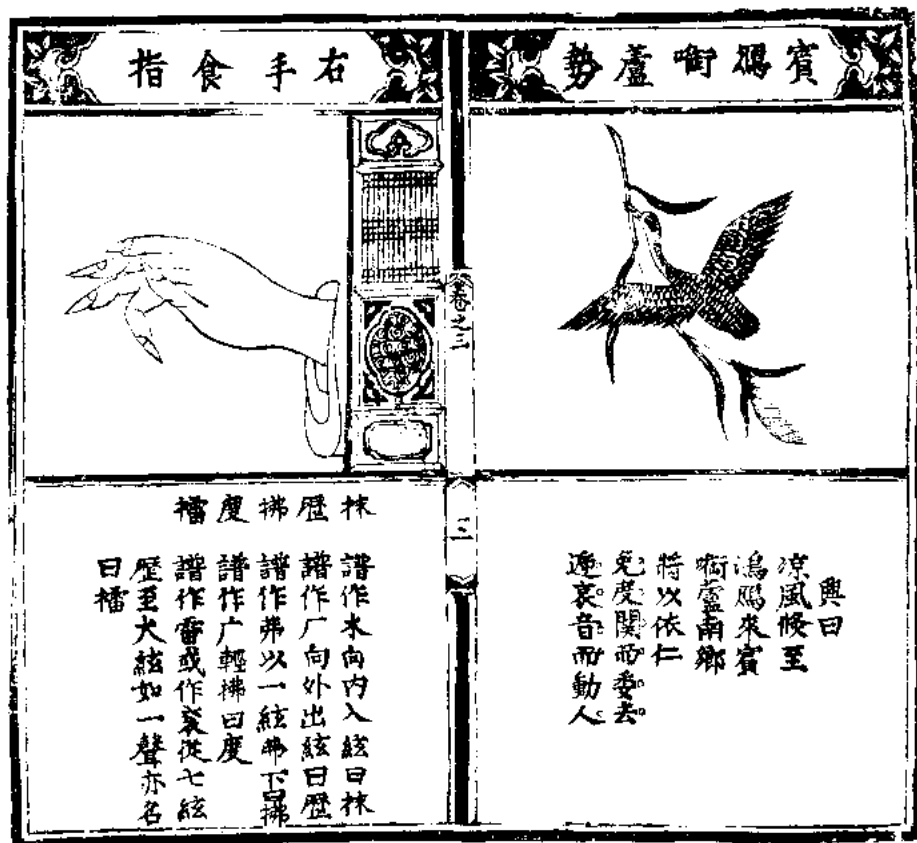 賓鴈啣蘆勢
興曰
凉風倐至
鴻鴈來賓
啣蘆南鄉
將以依仁
免度關而委去
遞哀音而動人
卷之三
三
右手食指
抹 歷 拂 度 擂
譜作木向内入絃曰抹
譜作厂向外出絃曰歷
譜作弗以一絃拂下曰拂
譜作广輕拂曰度
譜作雷或作衮從七絃
歷至大絃如一聲亦名
曰擂